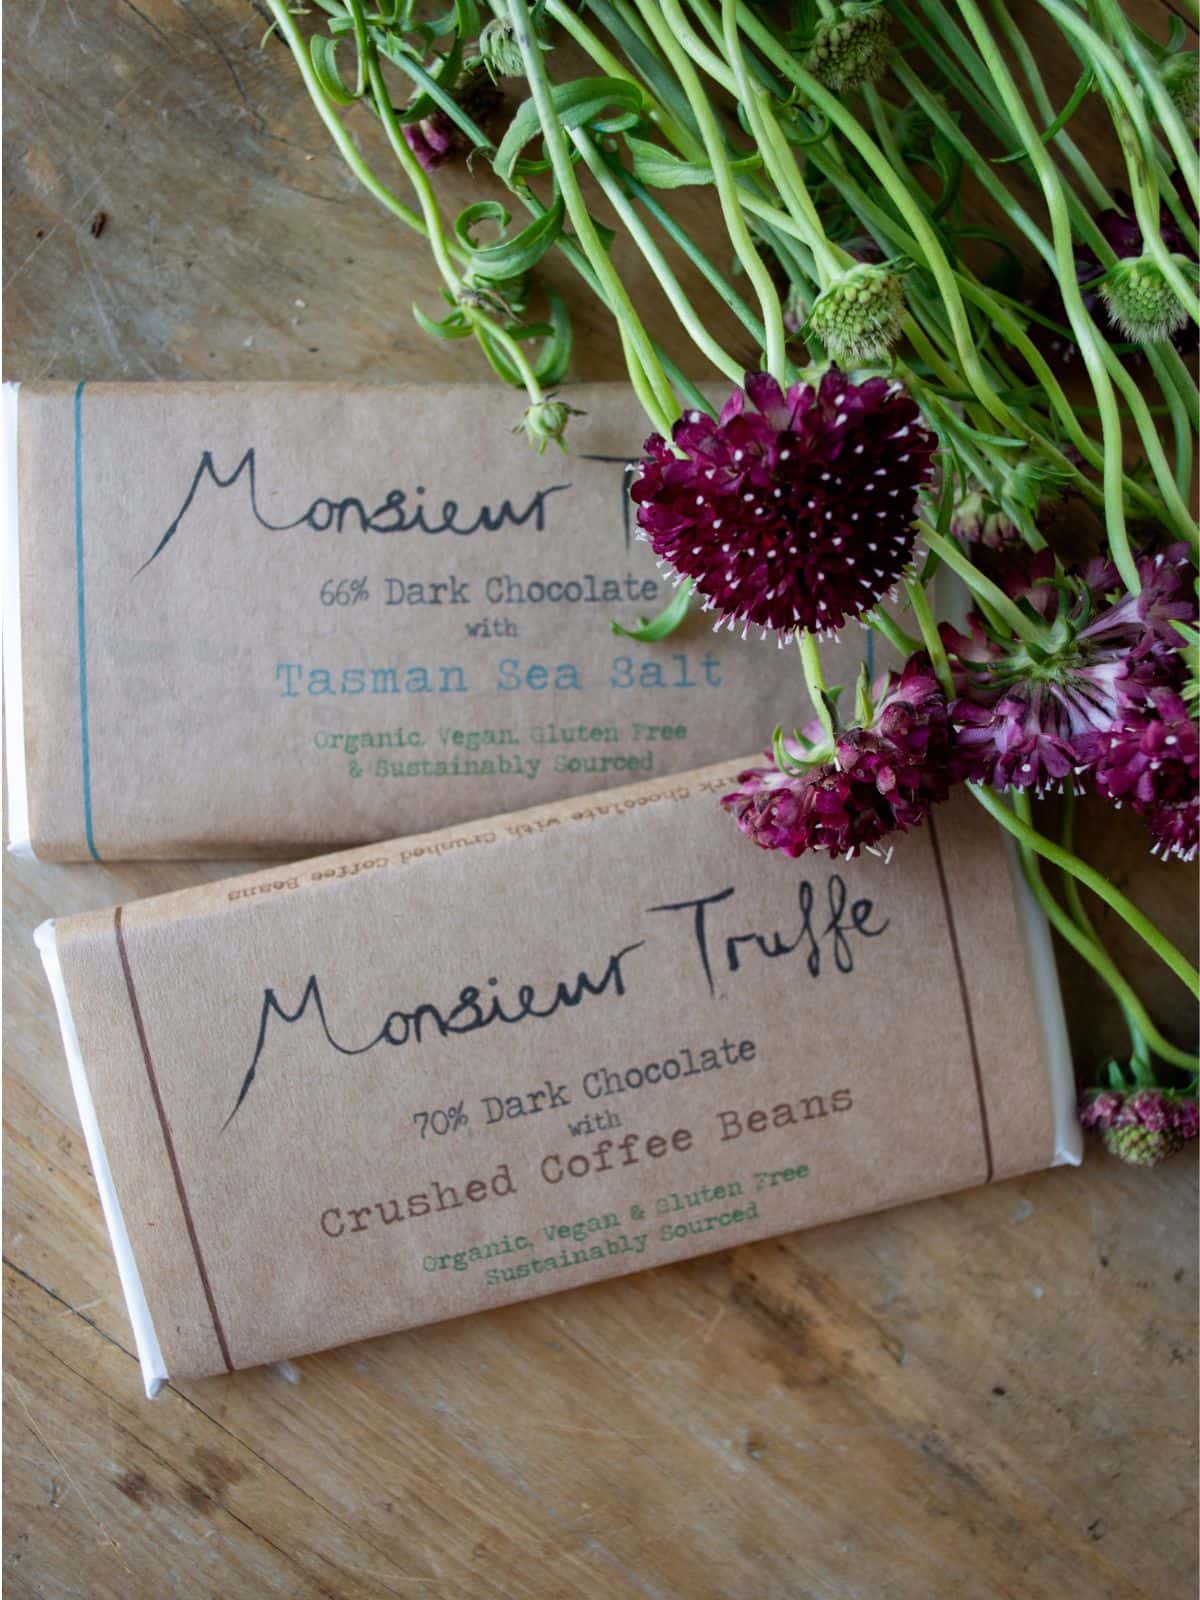 Monsieur T
66% Dark Chocolate
with
Tasman Sea Salt
Organic, Vegan, Gluten Free
& Sustainably Sourced
ark Chocolate with Crushed Coffee Beans
Monsieur Truffe
70% Dark Chocolate
with
Crushed Coffee Beans
Organic, Vegan & Gluten Free
Sustainably Sourced